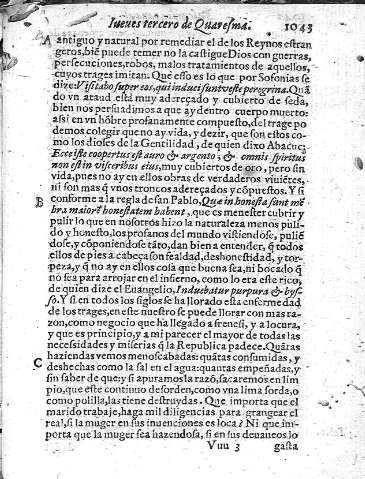 Iueues tercero de Quaresma. 1043
A antiguo y natural por remediar el de los Reynos estran
geros, biē puede temer no la castigue Dios con guerras,
persecuciones, robos, malos tratamientos de aquellos,
cuyos trages imitan. Que esso es lo que por Sofonias se
dize: Visitabo super eos, qui induti sunt veste peregrina. Quã
do vn ataud està muy adereçado y cubierto de seda,
bien nos persuadimos a que ay dentro cuerpo muerto:
assi en vn hõbre profanamente compuesto, del trage po
demos colegir que no ay vida, y dezir, que son estos co-
mo los dioses de la Gentilidad, de quien dixo Abacuc:
Ecce iste coopertus est auro & argento, & omnis spiritus
non est in visceribus eius, muy cubiertos de oro, pero sin
vida, pues no ay en ellos obras de verdaderos viuiētes,
ni son mas q̃ vnos troncos adereçados y cõpuestos. Y si
B conforme a la regla de san Pablo, Quæ inhonesta sunt mē
bra maiorē honestatem habent, que es menester cubrir y
pulir lo que en nosotros hizo la naturaleza menos puli-
do y honesto, los profanos del mundo vistiendose, puliē
dose, y cõponiendose tãto, dan bien a entender, q̃ todos
ellos de pies a cabeça son fealdad, deshonestidad, y tor-
peza, y q̃ no ay en ellos cosa que buena sea, ni bocado q̃
no sea para arrojar en el infierno, como lo era este rico,
de quien dize el Euangelio, Induebatur purpura & bys-
so. Y si en todos los siglos se ha llorado esta enfermedad
de los trages, en este nuestro se puede llorar con mas ra-
zon, como negocio que ha llegado a frenesi, y a locura,
y que es principio, y a mi parecer el mayor de todas las
necesidades y miserias q̃ la Republica padece. Quãtas
haziendas vemos menoscabadas: quãtas consumidas, y
C deshechas como la sal en el agua: quantas empeñadas, y
sin saber de que: y si apuramos la razõ, sacaremos en lim
pio, que este continuo desorden, como vna lima sorda, o
como polilla, las tiene destruydas. Que importa que el
marido trabaje, haga mil diligencias para grangear el
real, si la muger en sus inuenciones es loca? Ni que im-
porta que la muger sea hazendosa, si en sus deuaneos lo
Vuu 3 gasta